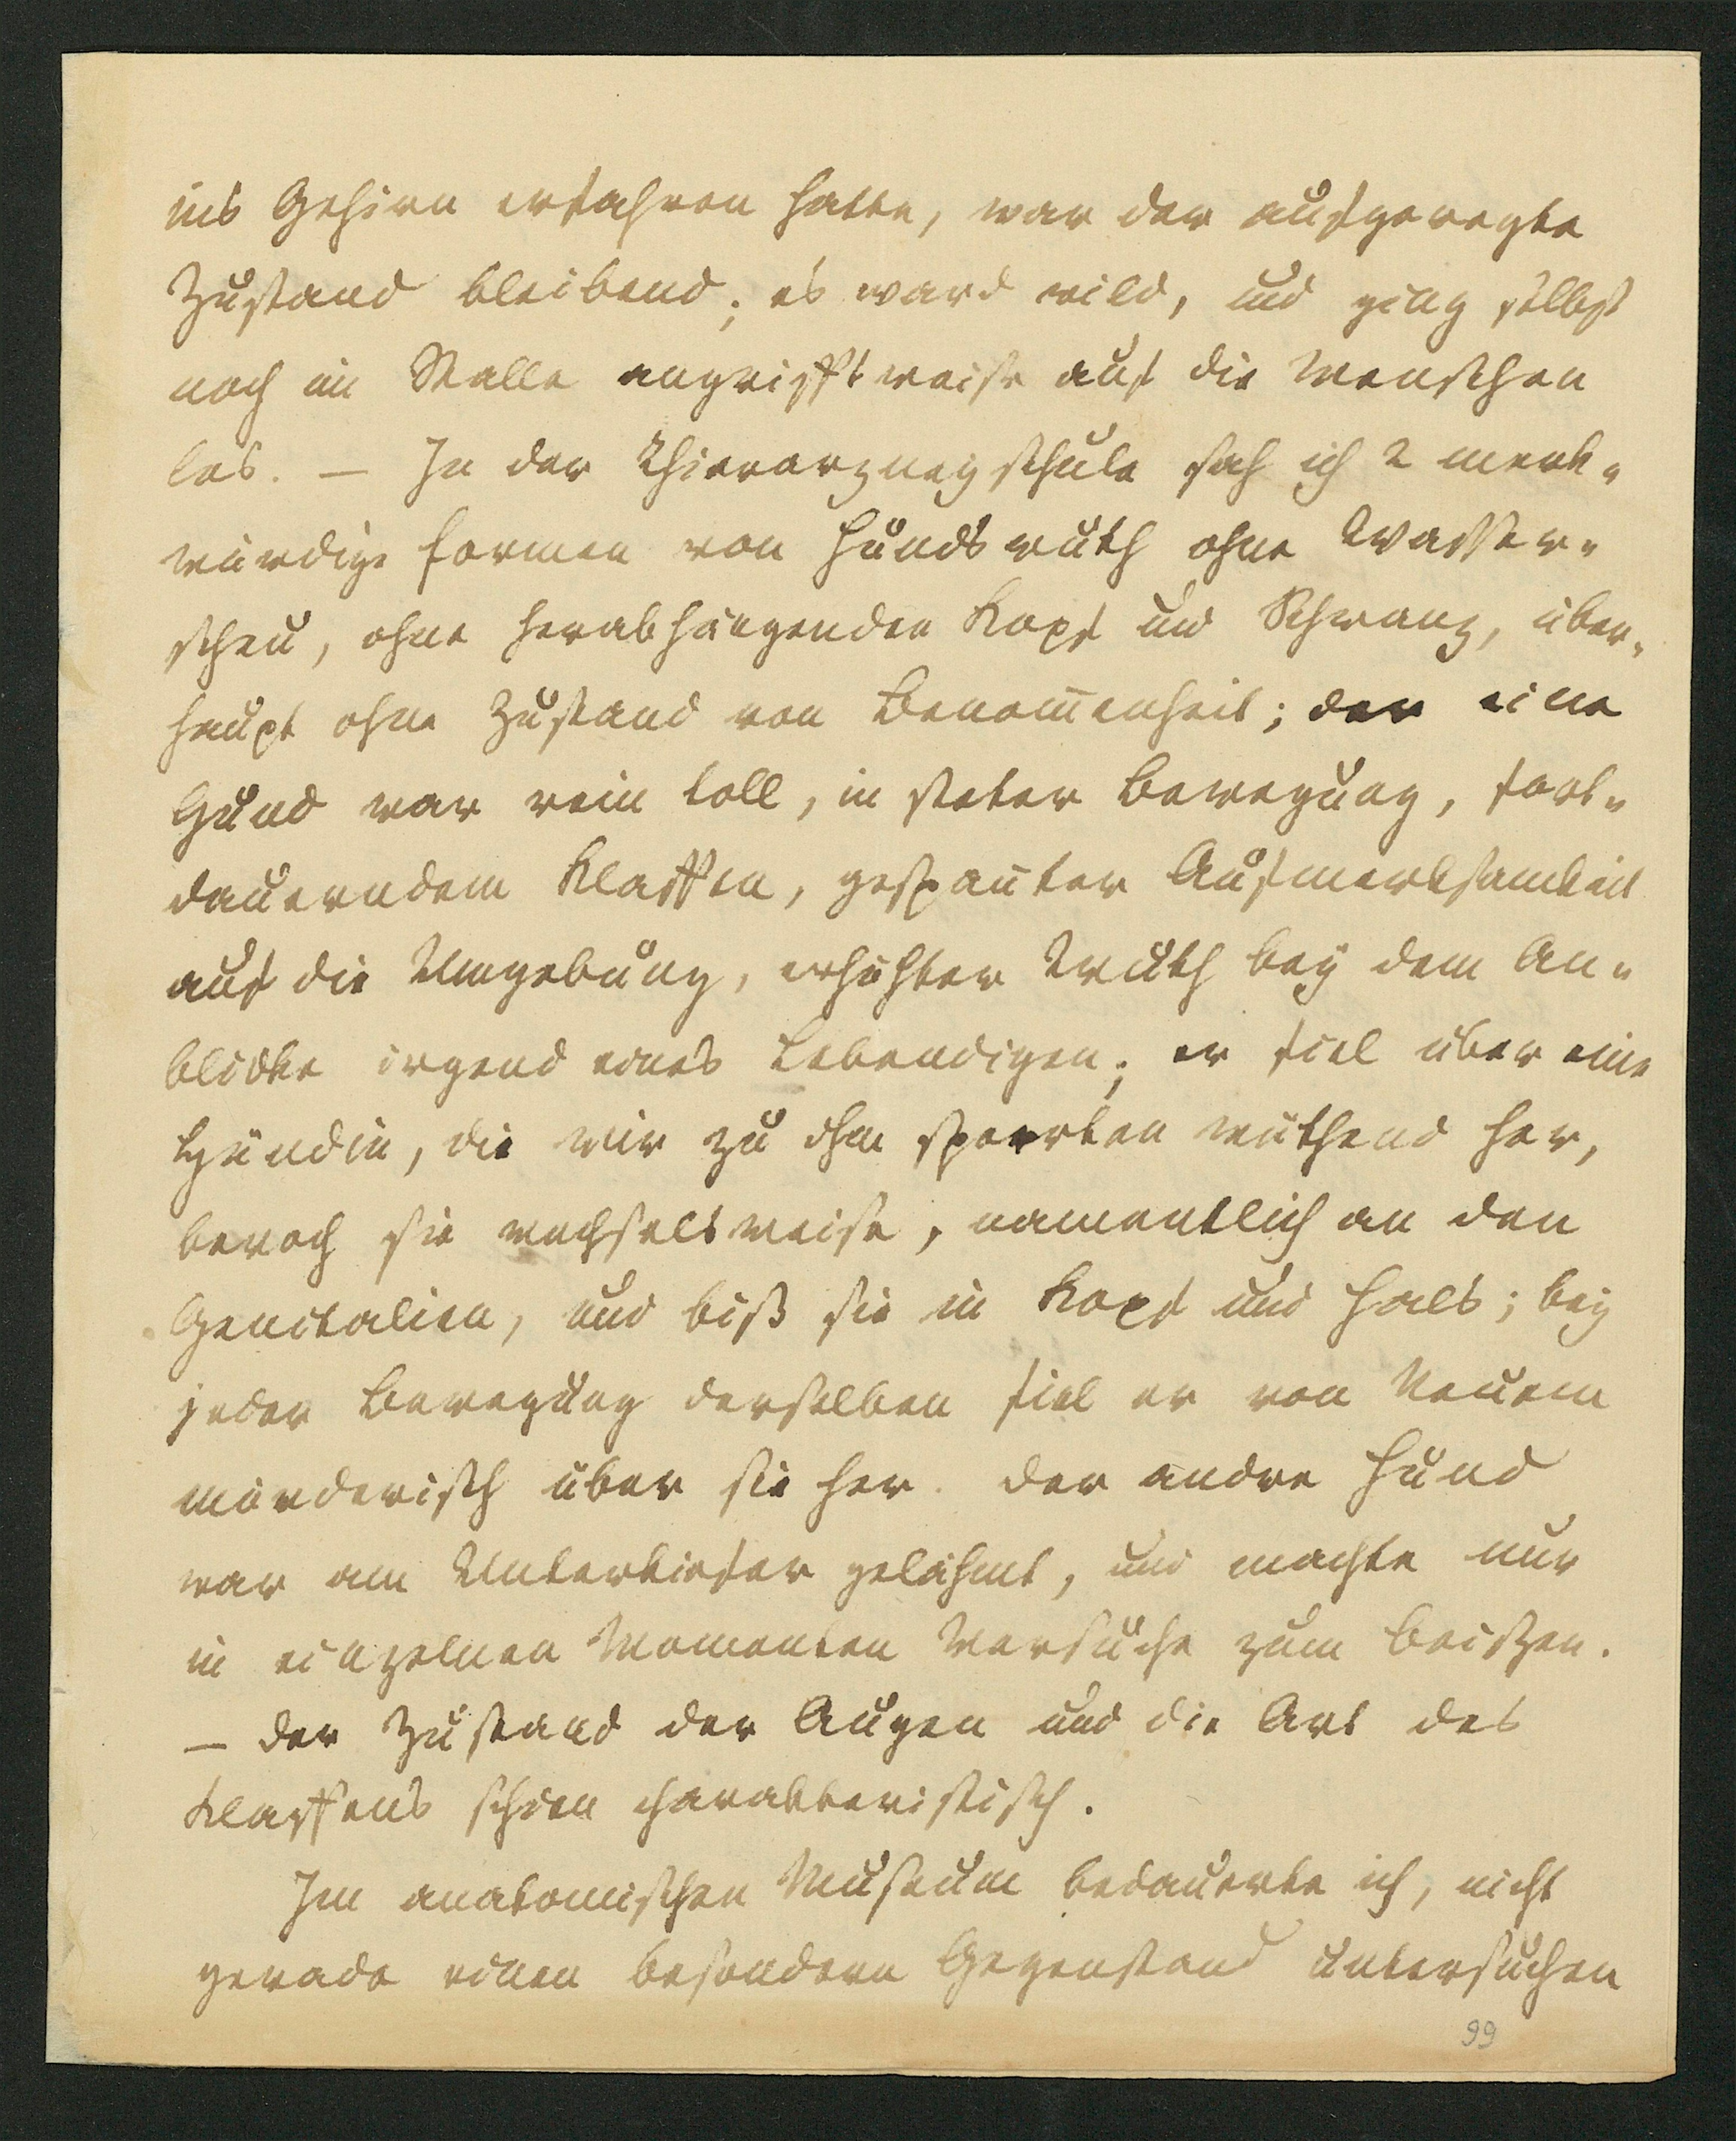 ins Gehirn erfahren hatte, war der aufgeregte
Zustand bleibend; es ward wild, und ging selbst
noch im Stalle angriffsweise auf die Menschen
los. — In der Thierarzneyschule sah ich 2 merk-
würdige Formen von Hundswuth ohne Wasser-
scheu, ohne herabhängenden Kopf und Schwanz, über-
haupt ohne Zustand von Benom̅enheit; der eine
Hund war rein toll, in steter Bewegung, fort-
dauerndem Klaffen, gespan̅ter Aufmerksamkeit
auf die Umgebung, erhöhter Wuth bey dem An-
blicke irgend eines Lebendigen; er fiel über eine
Hündin, die wir zu ihm sperrten wüthend her,
beroch sie wechselsweise, namentlich an den
Genitalien, und biß sie in Kopf und Hals; bey
jeder Bewegung derselben fiel er von Neuem
mörderisch über sie her. der andre Hund
war am Unterkiefer gelähmt, und machte nur
in einzelnen Momenten Versuche zum Beißen.
— der Zustand der Augen und die Art des
Klaffens schien charakteristisch.
Im anatomischen Museum bedauerte ich, nicht
gerade einen besondern Gegenstand untersuchen
99